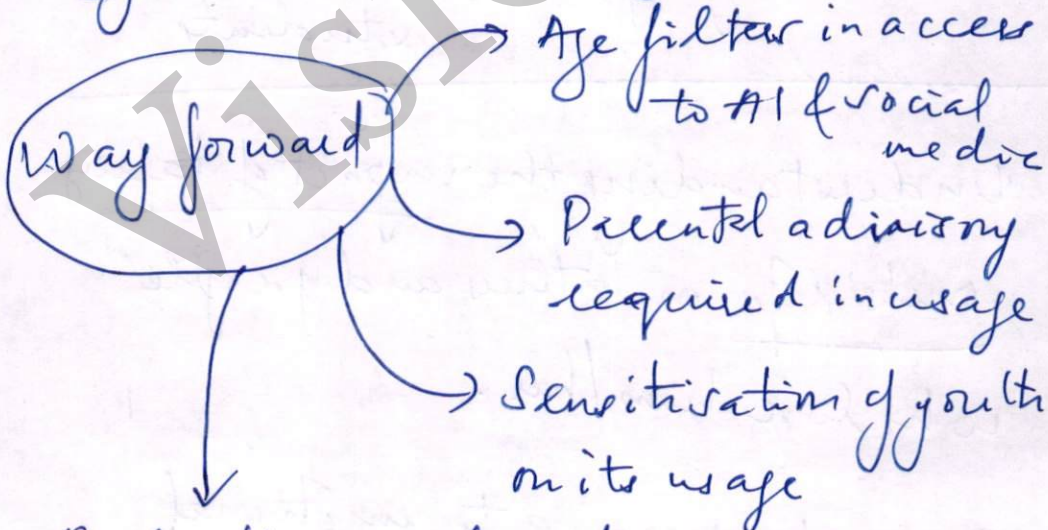 Way forward
Age filter in access
to AI & social
media
Parental advisory
required in usage
Sensitisation of youth
on its usage
Visio